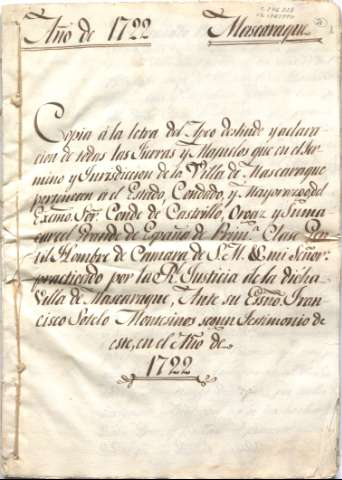 Año de 1722 Mascaraque
Copia à la letra del Apeo deslinde y aclara-
cion de todas las Tierras y Majuelos que en el ter
mino y Jurisdicion de la Villa de Mascaraque
pertenecen a el Estado, Condado, y Mayorazgo del
Exmo. Sor. Conde de Castrillo, Orgaz y Suma
carcel Grande de España de Prim.ª Clase Gen
til Hombre de Camara de S. M. & mi Señor:
practicado por la Rl. Justicia de la dicha
Villa de Mascaraque, Ante su Essno. Fran
cisco Sotelo Montesinos segun Testimonio de
este, en el Año de
1722